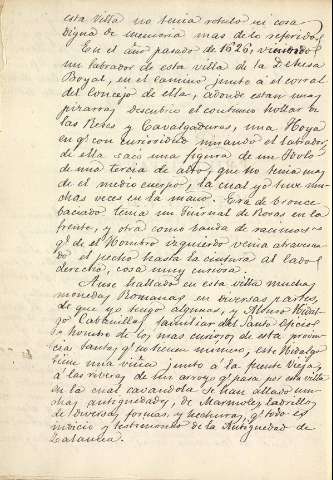 esta villa no tenia rotulo ni cosa
digna de memoria mas de lo referido.
En el año pasado de 1626, viniendo
un labrador de esta villa de la Dehesa
Boyal, en el camino junto á el corral
del Concejo de ella, adonde estan unas
pizarras descubrio el continuo hollar de
las Reses y Cavalgaduras, una Hoya
en qe. con curiosidad mirando el Labrador
de ella saco una figura de un Idolo
de una tercia de alto, que no tenia mas
de el medio cuerpo, la cual yo tuve mu
chas veces en la mano. Era de bronce
baciado tenia un Guirnal de Rosas en la
frente, y otra como banda de racimos
qe. de el Hombro izquierdo venia atravesan
do el pecho hasta la cintura al lado
derecho, cosa muy curiosa.
Anse hallado en esta villa muchas
monedas Romanas en diversas partes,
de que yo tengo algunas, y Alonso Hidal
go Cabanillas familiar del Santo Oficio
hombre de los mas curiosos de esta provin
cia tantos qe. en tienen numero, este Hidalgo
tiene una viña junto á la fuente Vieja,
á las riveras de un arroyo qe. pasa por esta villa
en la cual cavandola se han allado mu
chas antiguedades, de Marmoles, ladrillos
de diversas formas, y hechuras, qe. todo es
indicio y testimonio de la Antiguedad de
Zalamea.